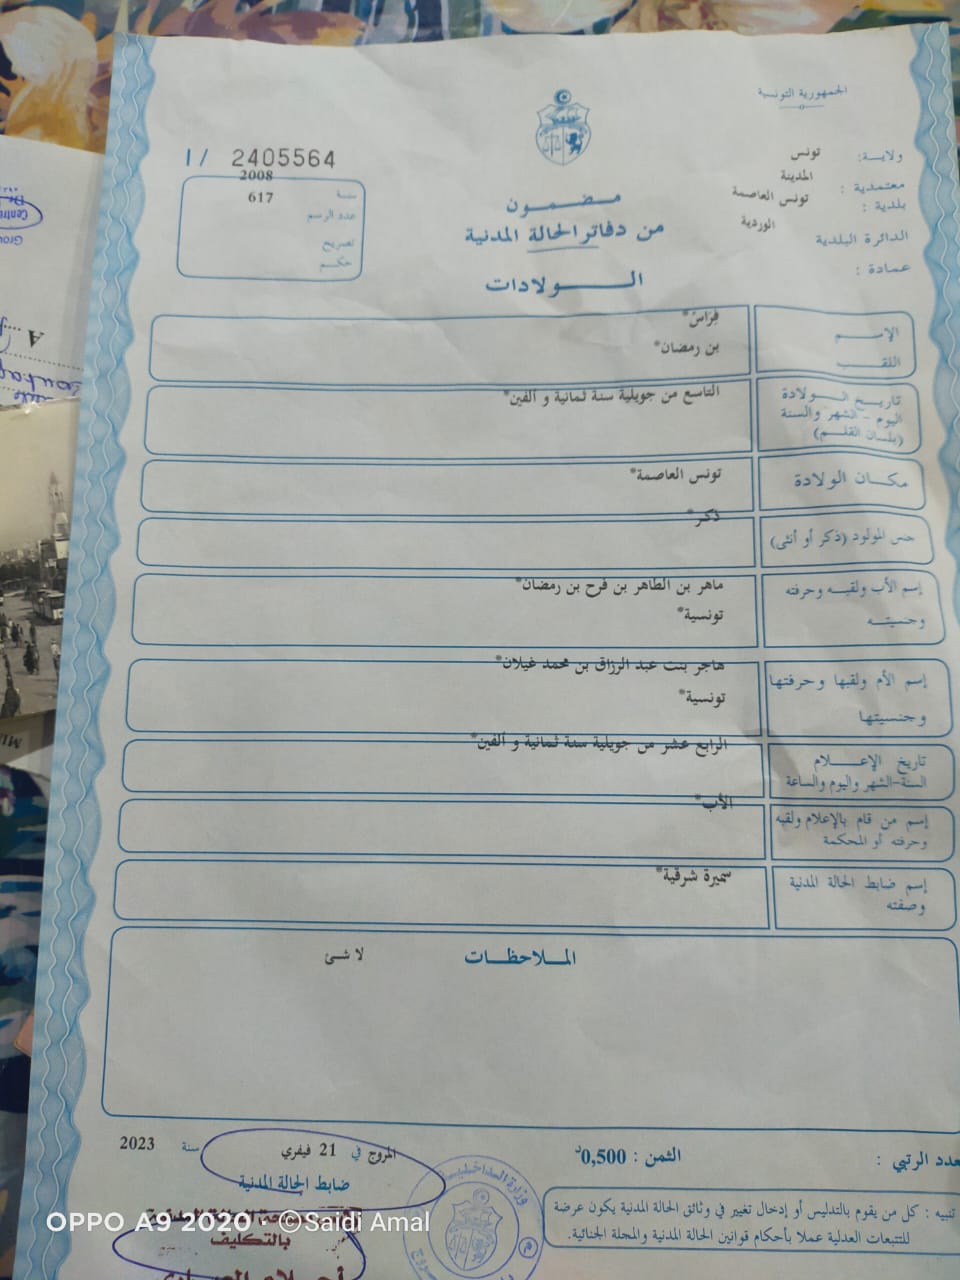 الجمهورية التونسية
ولاية: تونس
معتمدية : المدينة
بلدية : تونس العاصمة
الدائرة البلدية الوردية
عمادة :
I / 2405564
سنة 2008
عدد الرسم 617
تصريح
حكم
مضمون
من دفاتر الحالة المدنية
الولادات
الإسم فِرَاسْ*
اللقب بن رمضان*
تاريخ الولادة التاسع من جويلية سنة ثمانية و ألفين*
اليوم - الشهر والسنة
(بلسان القلم)
مكان الولادة تونس العاصمة*
جنس المولود (ذكر أو أنثى) ذكر*
إسم الأب ولقبه وحرفته ماهر بن الطاهر بن فرح بن رمضان*
وجنسيته تونسية*
إسم الأم ولقبها وحرفتها هاجر بنت عبد الرزاق بن محمد غيلان*
وجنسيتها تونسية*
تاريخ الإعلام الرابع عشر من جويلية سنة ثمانية و ألفين*
السنة-الشهر واليوم والساعة
إسم من قام بالإعلام ولقبه الأب*
وحرفته أو المحكمة
إسم ضابط الحالة المدنية سميرة شرقية*
وصفته
الملاحظات لا شئ
عدد الرتبي : الثمن : 0,500د
المروج في 21 فيفري سنة 2023
ضابط الحالة المدنية
تنبيه : كل من يقوم بالتدليس أو إدخال تغيير في وثائق الحالة المدنية يكون عرضة
للتتبعات العدلية عملا بأحكام قوانين الحالة المدنية والمجلة الجنائية.
وزارة الداخلية
بالتكليف
OPPO A9 2020 · ©Saidi Amal